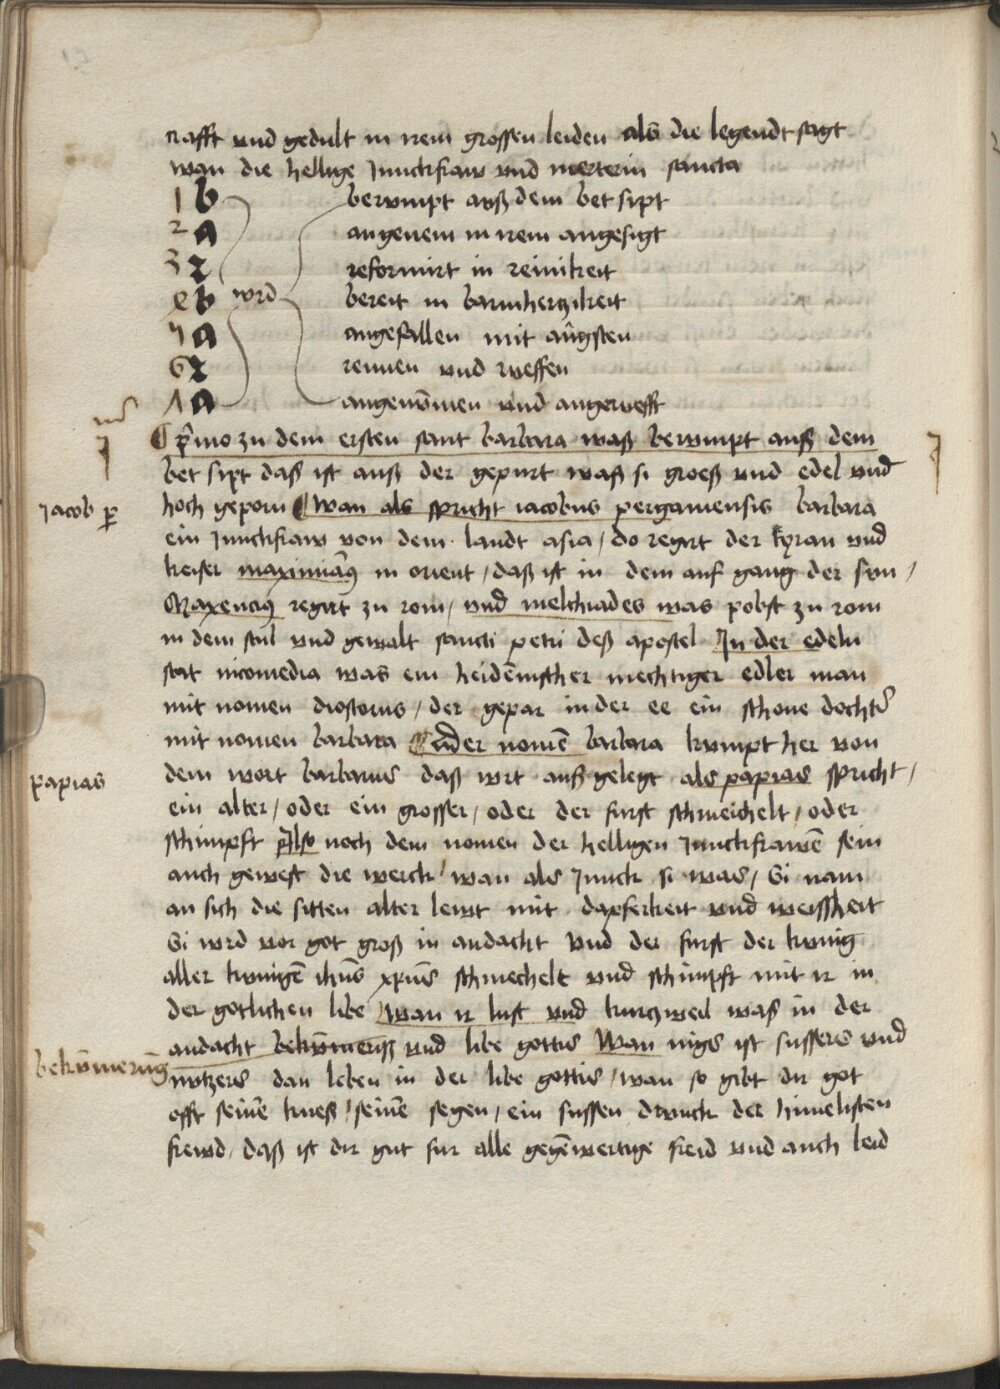 rafft vnd gedult in irem grossen leiden als die legendt sagt
wan die hellige Junckfraw vnd merterin sancta
1 b berumpt auß dem bet sipt
2 a angenem in irem angesigt
3 r reformirt in reinikeit
4 b wird bereit in barmherczikeit
5 a angefallen mit angsten
6 r rennen vnd
7 a angenōmen vnd
¶ p̄mo zu dem ersten sant barbara waß berumpt auß dem
bet sipt daß ist auß der gepurt waß si groeß vnd edel vnd
Jacob p̱ hoch geporn ¶ wan als spricht iacobus pergamensis barbara
ein Junckfraw von dem landt asia / do regirt der tyran vnd
keiser maximiāꝰ in orient / daß ist in dem auf gang der sun /
Maxenciꝰ regirt zu rom / vnd melchiades was pobst zu rom
in dem stul vnd gewalt sancti petri deß apostel In der edeln
stat nicomedia was ein heidēnischer mechtiger edler man
mit nomen dioscorus / der gepar in der ee ein schone dochtẽ
mit nomen barbara ¶ nomē barbara kumpt her von
papias dem wort barbarus daß wirt auß gelegt als papias spricht /
ein alter / oder ein grosser / oder der furst schmeichelt / oder
schimpft Also noch dem nomen der helligen Junckfrawē sein
auch gewest die werck / wan als Junck si was / Si nam
an sich die sitten alter lewt mit dapferkeit vnd weissheit
Si wird vor got groß in andacht vnd der furst der kunig
aller kunigē ihūs xp̄us schmechelt vnd schimpft mit ir in
der gotlichen libe / wan ir lust vnd kurczweil waß in der
andacht bekūmerniß vnd libe gottis Wan nigs ist susseres vnd
bekūmerūg nutzers dan leben in der libe gottis / wan so gibt dir got
offt seinē kueß / seinē segen / ein sussen druck der himelisten
frewd / daß ist dir gut fur alle gegēwertige freid vnd auch leid